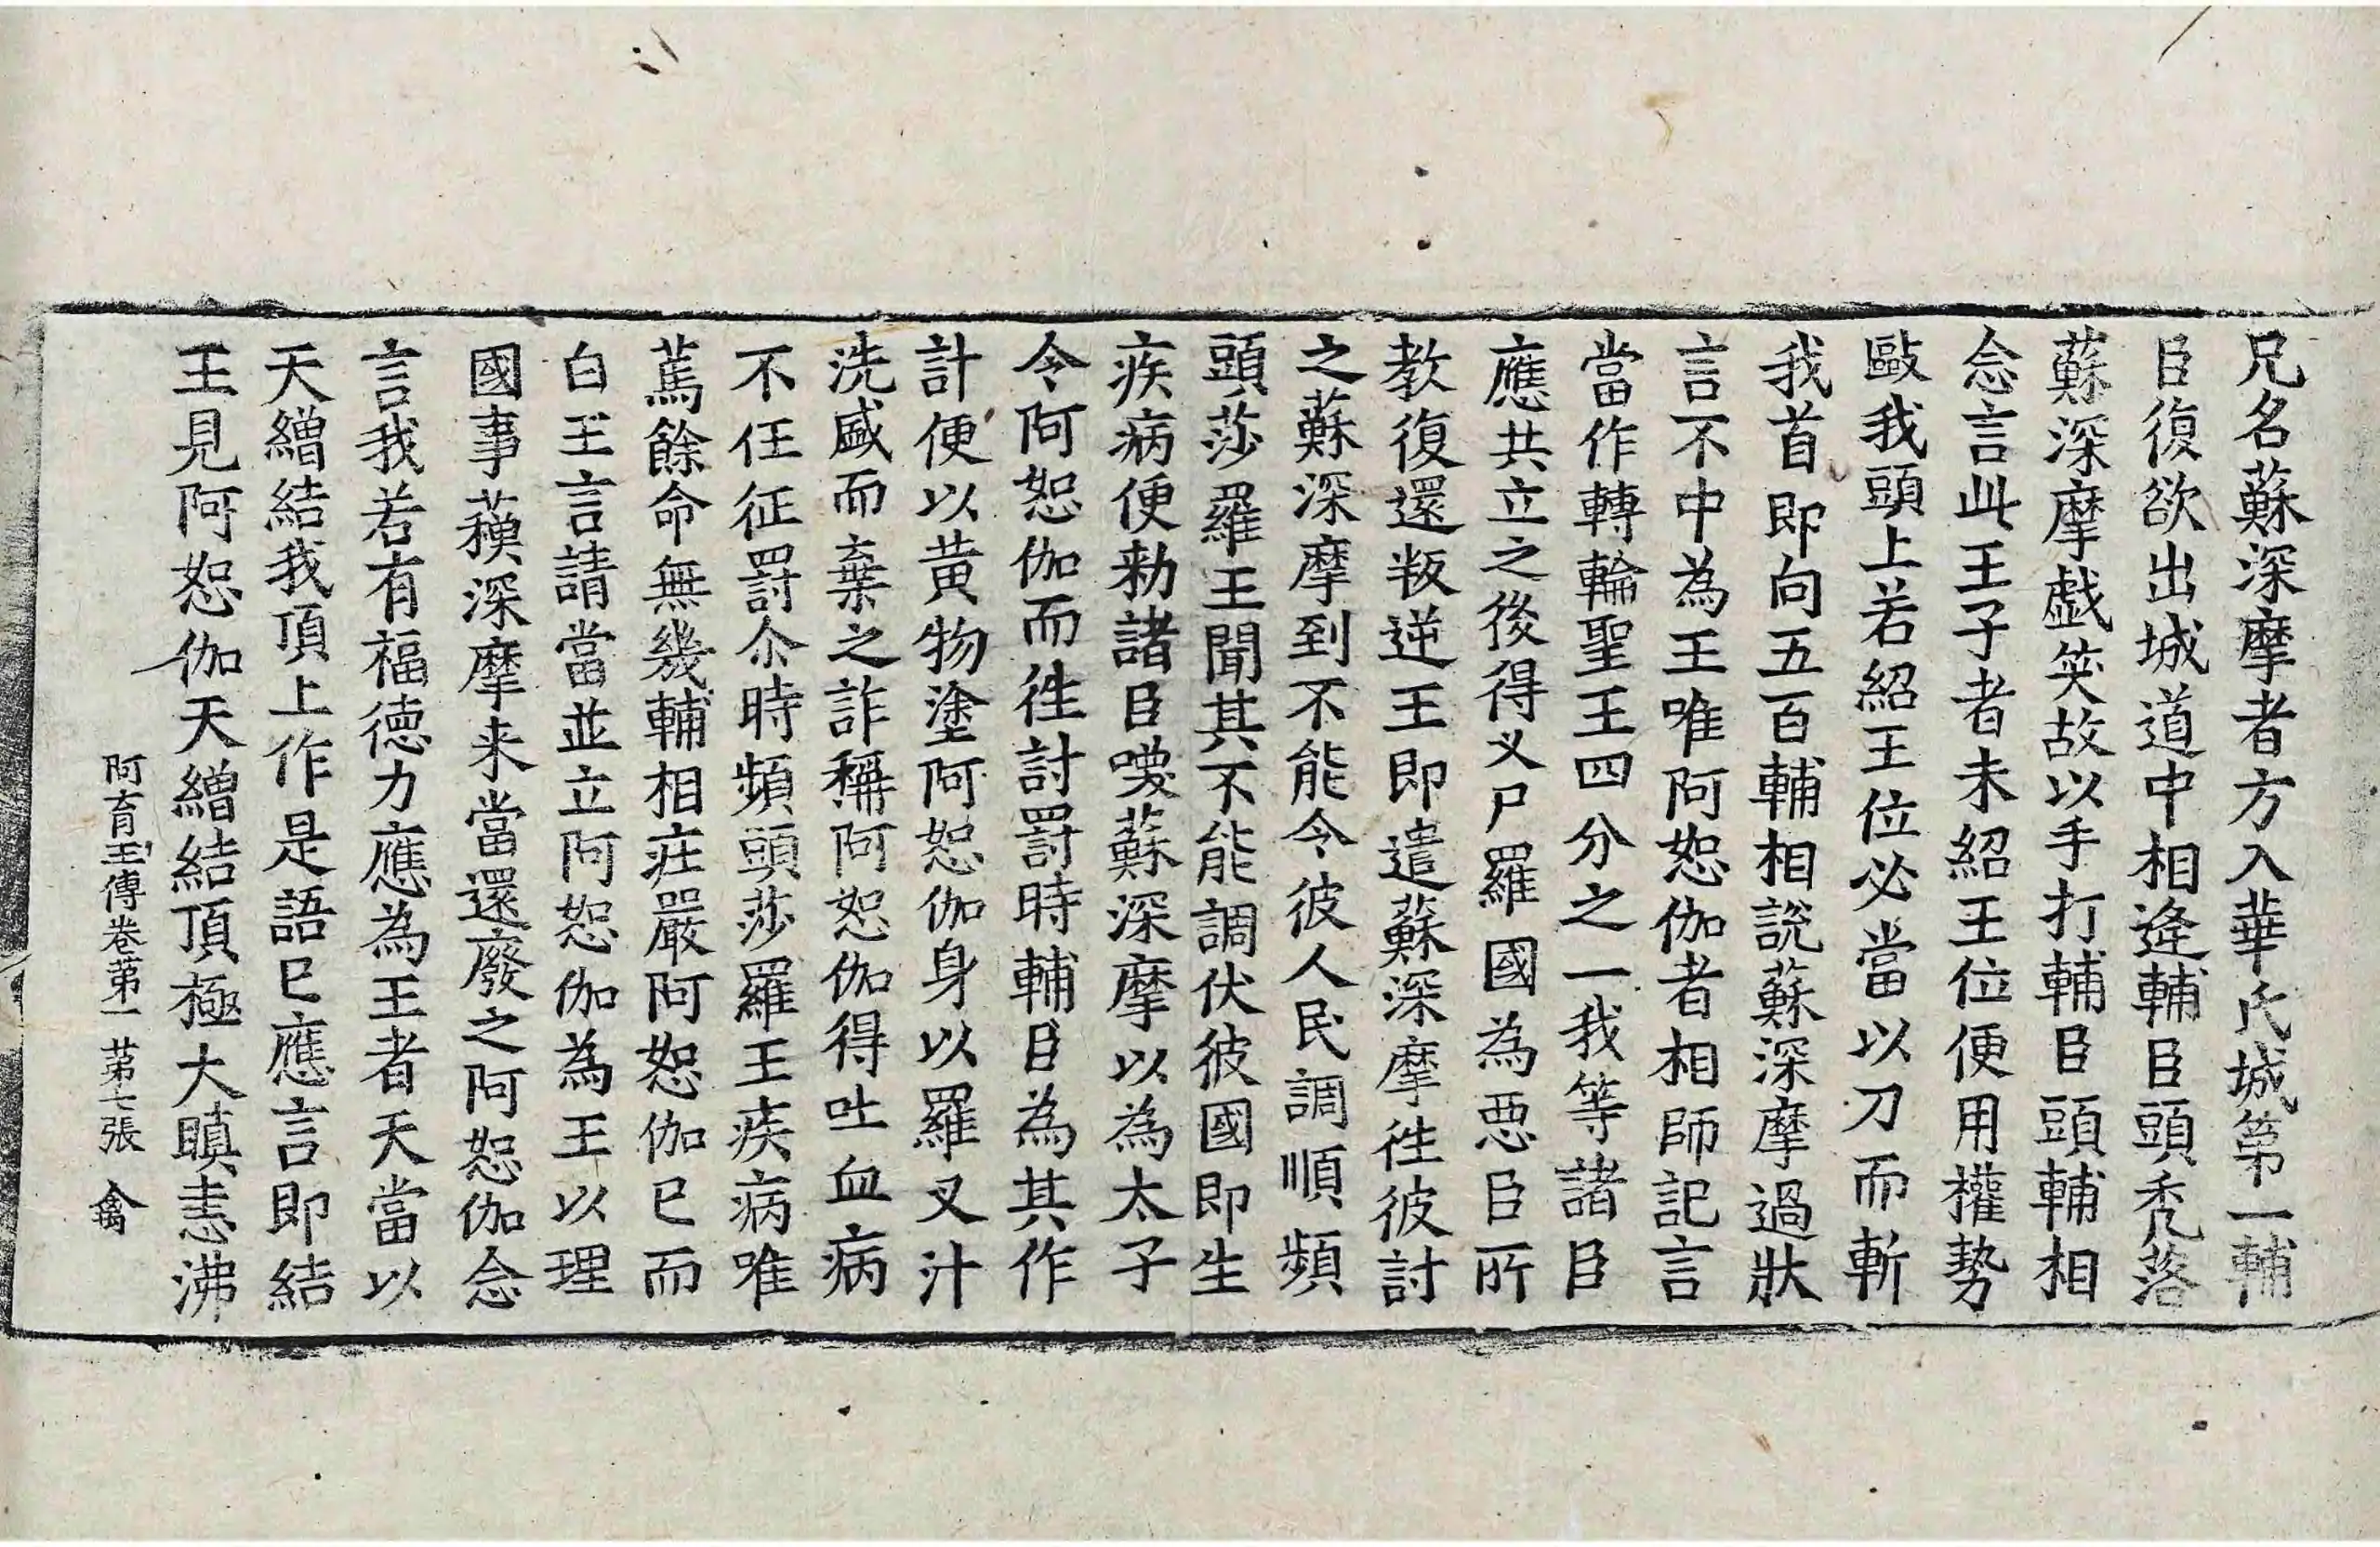 兄名蘇深摩者方入華氏城第一輔
臣復欲出城道中相逢輔臣頭秃落
蘇深摩戯笑故以手打輔臣頭輔相
念言此王子者未紹王位便用權勢
歐我頭上若紹王位必當以刀而斬
我首即向五百輔相說蘇深摩過狀
言不中為王唯阿恕伽者相師記言
當作轉輪聖王王四分之一我等諸臣
應共立之後得叉尸羅國為惡臣所
教復還叛逆王即遣蘇深摩徃彼討
之蘇深摩到不能令彼人民調順頻
頭莎羅王聞其不能調伏彼國即生
疾病便勑諸臣喚蘇深摩以為太子
令阿恕伽而徃討罸時輔臣為其作
計便以黄物塗阿恕伽身以羅叉汁
洗盛而棄之詐稱阿恕伽得吐血病
不任征罸尒時頻頭莎羅王疾病唯
篤餘命無幾輔相莊嚴阿恕伽已而
白王言請當並立阿恕伽為王以理
國事蘓深摩来當還廢之阿恕伽念
言我若有福德力應為王者天當以
天繒結我頂上作是語已應言即結
王見阿恕伽天繒結頂極大瞋恚沸
阿育王傳卷第一 第七張 禽